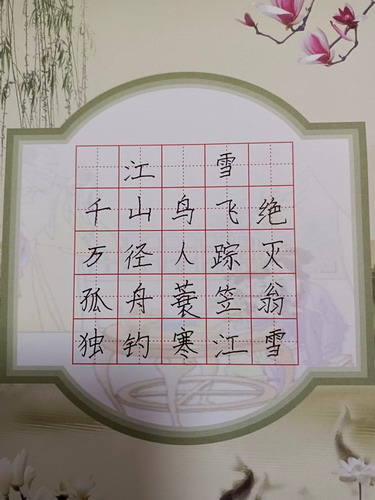 江 雪
千山鸟飞绝
万径人踪灭
孤舟蓑笠翁
独钓寒江雪